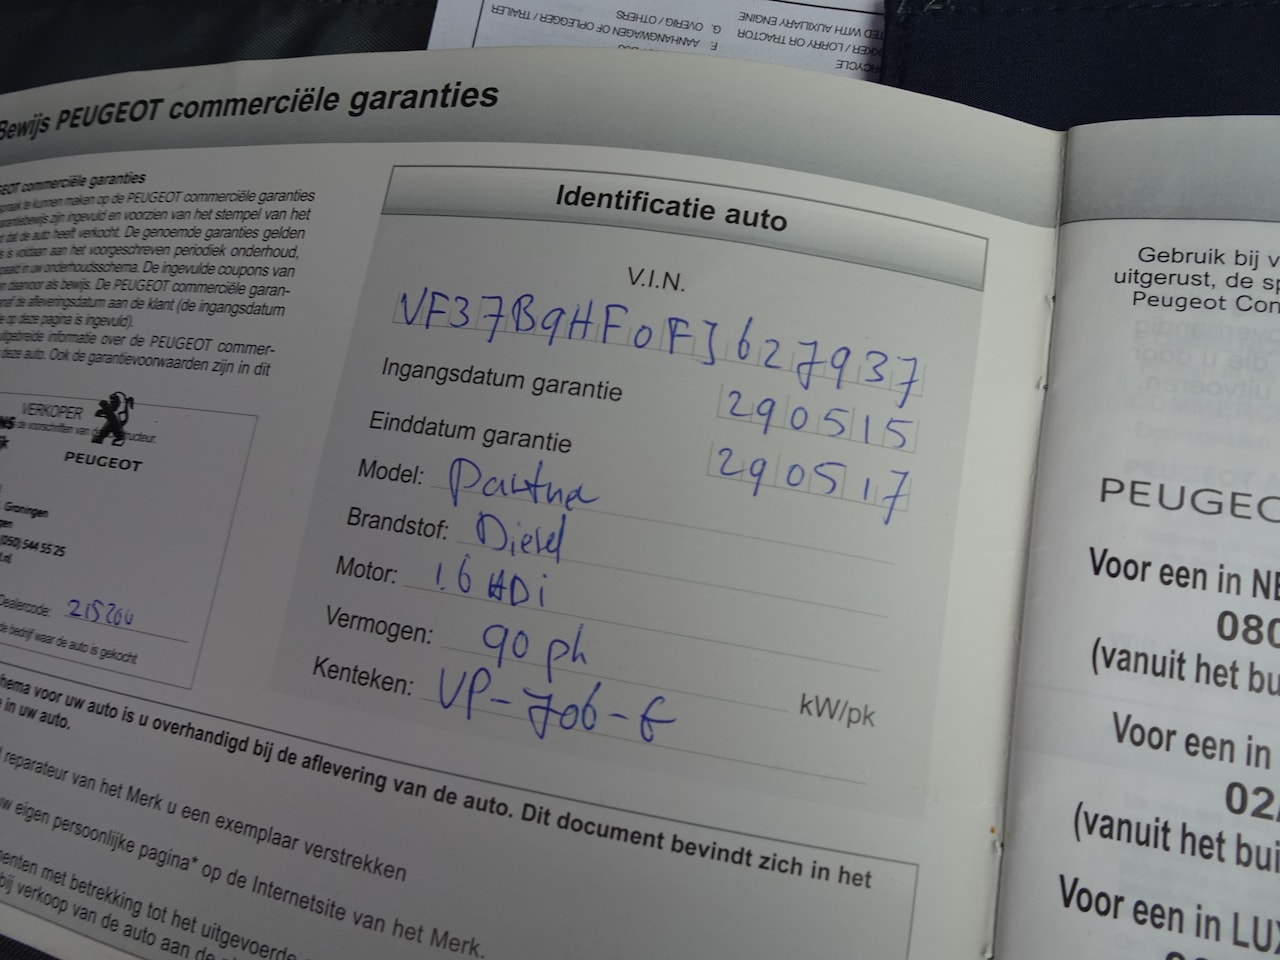 G. OVERIG / OTHERS
F. AANHANGWAGEN OF OPLEGGER / TRAILER
WITH AUXILIARY ENGINE
LORRY OR TRACTOR
Bewijs PEUGEOT commerciële garanties
commerciële garanties
te kunnen maken op de PEUGEOT commerciële garanties
zijn ingevuld en voorzien van het stempel van het
dat de auto heeft verkocht. De genoemde garanties gelden
is voldaan aan het voorgeschreven periodiek onderhoud,
in uw onderhoudsschema. De ingevulde coupons van
daarvoor als bewijs. De PEUGEOT commerciële garan-
de afleveringsdatum aan de klant (de ingangsdatum
op deze pagina is ingevuld).
informatie over de PEUGEOT commer-
deze auto. Ook de garantievoorwaarden zijn in dit
VERKOPER
de voorschriften van de
PEUGEOT
Groningen
(050) 544 55 25
Dealercode: 215200
de bedrijf waar de auto is gekocht
Identificatie auto
V.I.N.
VF37B9HF0FJ627937
Ingangsdatum garantie 290515
Einddatum garantie 290517
Model: Partner
Brandstof: Diesel
Motor: 1.6 HDi
Vermogen: 90 pk kW/pk
Kenteken: VP-706-G
voor uw auto is u overhandigd bij de aflevering van de auto. Dit document bevindt zich in het
in uw auto.
reparateur van het Merk u een exemplaar verstrekken
eigen persoonlijke pagina* op de Internetsite van het Merk.
met betrekking tot het uitgevoerde
bij verkoop van de auto aan de
Gebruik bij
uitgerust, de
Peugeot
PEUGEO
Voor een in
080
(vanuit het
Voor een in
02
(vanuit het
Voor een in LUX